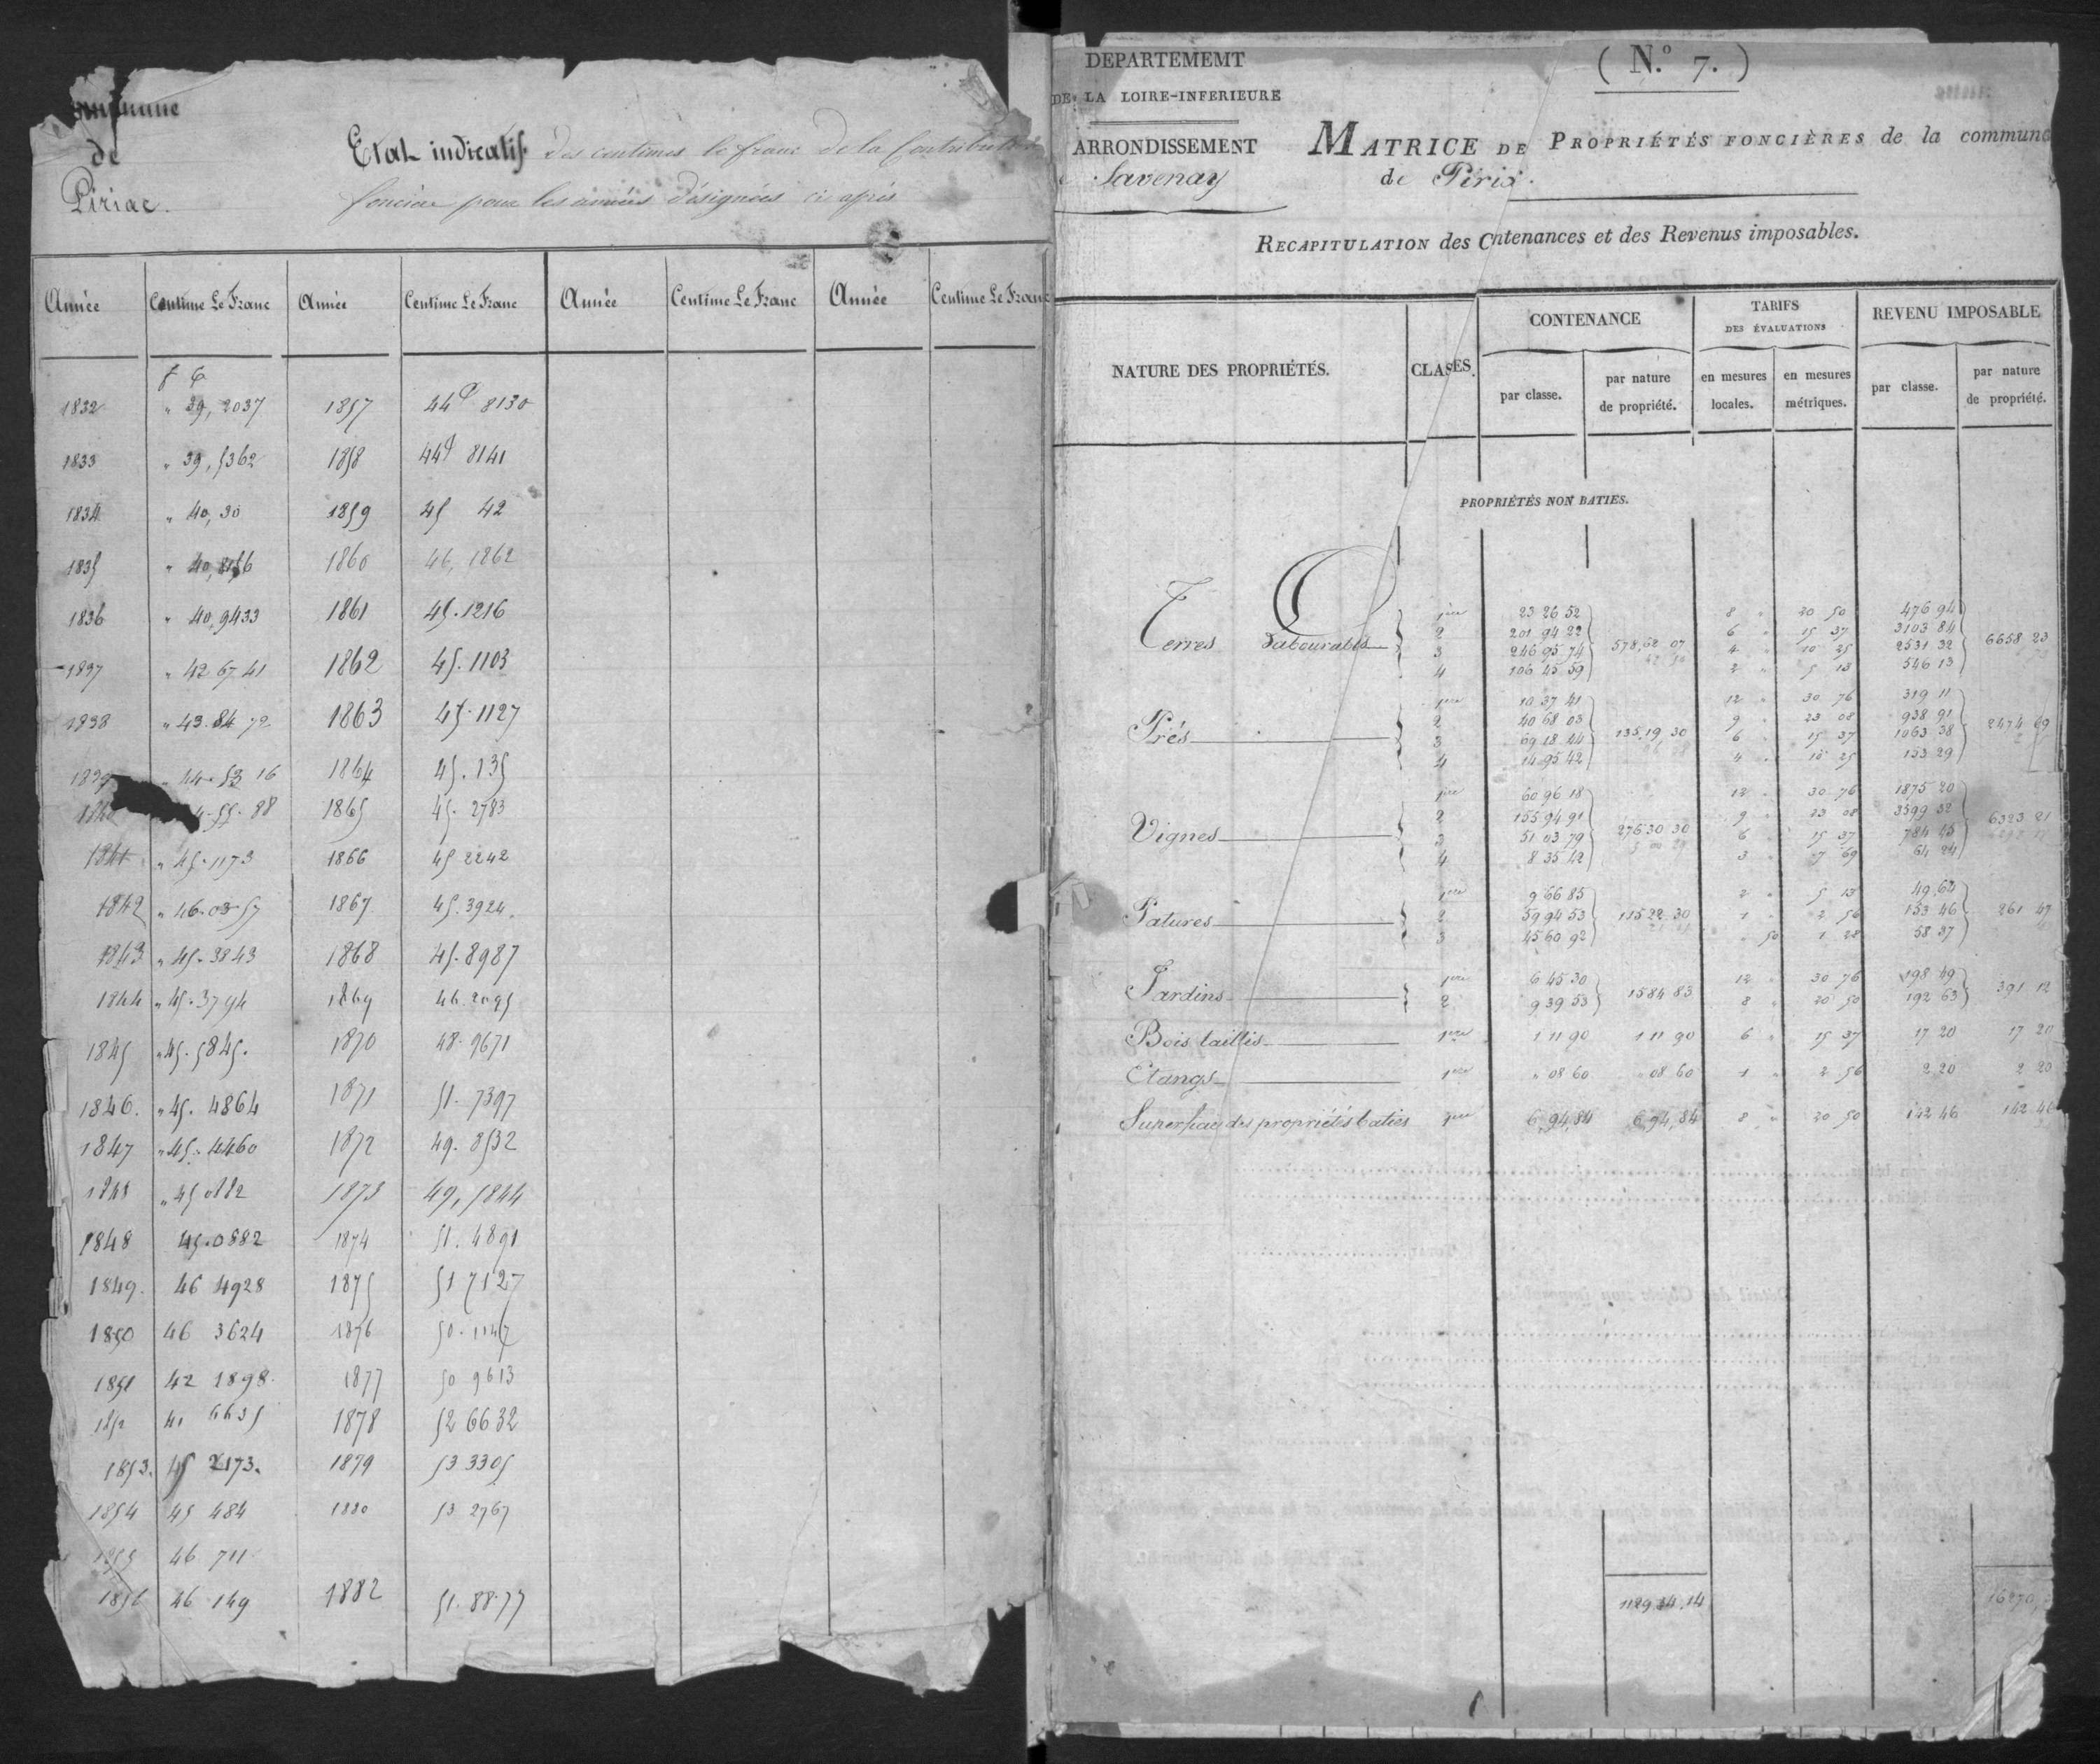 de
Piriac.
Etat indicatif des centimes le franc de la Contribution
foncière pour les années désignées ci après
Année Centime Le Franc Année Centime Le Franc Année Centime Le Franc Année Centime Le Franc
f c
1832 " 39, 2037 1857 44 8130
1833 " 39, 5362 1858 44 8141
1834 " 40, 30 1859 45 42
1835 1860 46, 1862
1836 " 40,9433 1861 45.1216
1837 " 42 67 41 1862 45.1103
1838 " 43.84 72 1863 45.1127
1839 16 1864 45.135
1840 88 1865 45.2783
1841 " 45.1173 1866 45 2242
1842 " 46.03 57 1867 45.3924.
1843 " 45.3843 1868 45.8987
1844 " 45.3794 1869 46.2095
1845 " 45.5845. 1870 48.9671
1846. " 45. 4864 1871 51.7397
1847 " 45. 4460 1872 49.8532
" 45 0882 1873 49,5844
1848 45.0882 1874 51.4891
1849. 46 4928 1875 51 7127
1850 46 3624 1876
1851 42 1898. 1877 50 9613
1852 41 6635 1878 52 6632
1853. 45 2173. 1879 53 3305
1854 45 484 1880 53 2767
1855 46 711
1856 46 149 1882 51.88.77
DEPARTEMEMT
DE LA LOIRE-INFERIEURE
ARRONDISSEMENT
Savenay
( N.º 7. )
MATRICE DE PROPRIÉTÉS FONCIÈRES de la commune
de Piria
RECAPITULATION des Cntenances et des Revenus imposables.
NATURE DES PROPRIÉTÉS. CLASES. CONTENANCE TARIFS DES ÉVALUATIONS REVENU IMPOSABLE
par classe. par nature de propriété. en mesures locales. en mesures métriques. par classe. par nature de propriété.
PROPRIÉTÉS NON BATIES.
Terres Labourables
1ere 23 26 52 8 " 20 50 476 94
2 201 94 22 6 " 15 37 3103 84
3 246 95 74 578,62 07 4 " 10 25 2531 32 6658 23
4 106 45 59 2 " 5 13 546 13
Prés
1ere 10 37 41 12 " 30 76 319 11
2 40 68 03 9 " 23 08 938 91
3 69 18 44 135.19 30 6 " 15 37 1063 38 2474 69
4 14 95 42 4 " 10 25 153 29
Vignes
1ere 60 96 18 12 " 30 76 1875 20
2 155 94 91 9 " 23 08 3599 32
3 51 03 79 276 30 30 6 " 15 37 784 45 6323 21
4 8 35 42 3 " 7 69 64 24
Patures
1ere 9 66 85 2 " 5 13 49,64
2 59 94 53 115 22 30 1 " 2 56 153 46 261 47
3 45 60 92 " 50 1 28 58 37
Jardins
1ere 6 45 30 12 " 30 76 198 49
2 9 39 53 15 84 83 8 " 20 50 192 63 391 12
Bois taillis 1ere 1 11 90 1 11 90 6 " 15 37 17 20 17 20
Etangs 1ere " 08 60 " 08 60 1 " 2 56 2 20 2 20
Superficie des propriétés baties 1ere 6,94,84 6,94,84 8 " 20 50 142 46 142 46
1129 34.14
16270,